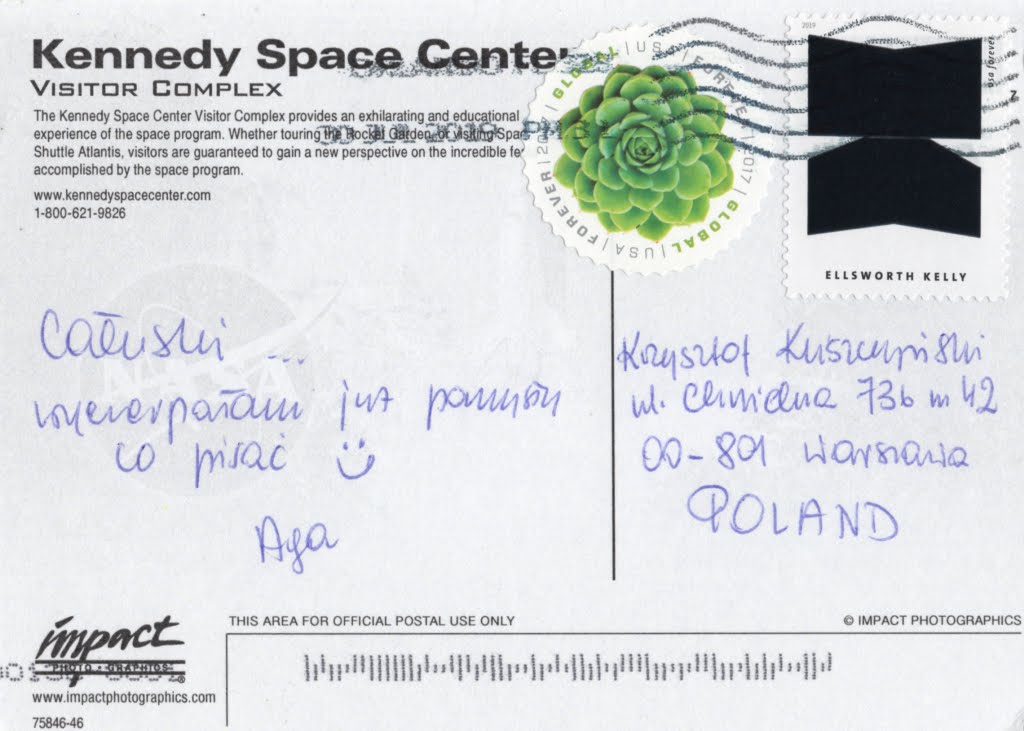 Kennedy Space Center
VISITOR COMPLEX
The Kennedy Space Center Visitor Complex provides an exhilarating and educational
experience of the space program. Whether touring the Rocket Garden, or visiting Spa
Shuttle Atlantis, visitors are guaranteed to gain a new perspective on the incredible fe
accomplished by the space program.
www.kennedyspacecenter.com
1-800-621-9826
GLOBAL | USA | FOREVER | 2017 | GLOBAL | USA | FOREVER | 2017
2019
usa forever
ELLSWORTH KELLY
JUL 2019 PM
NASA
Całuski ...
wyczerpałam już pomysły
co pisać
Aga
Krzysztof
ul. Chmielna 73b m 42
00-801 Warszawa
POLAND
impact
PHOTO • GRAPHICS
www.impactphotographics.com
75846-46
THIS AREA FOR OFFICIAL POSTAL USE ONLY
© IMPACT PHOTOGRAPHICS